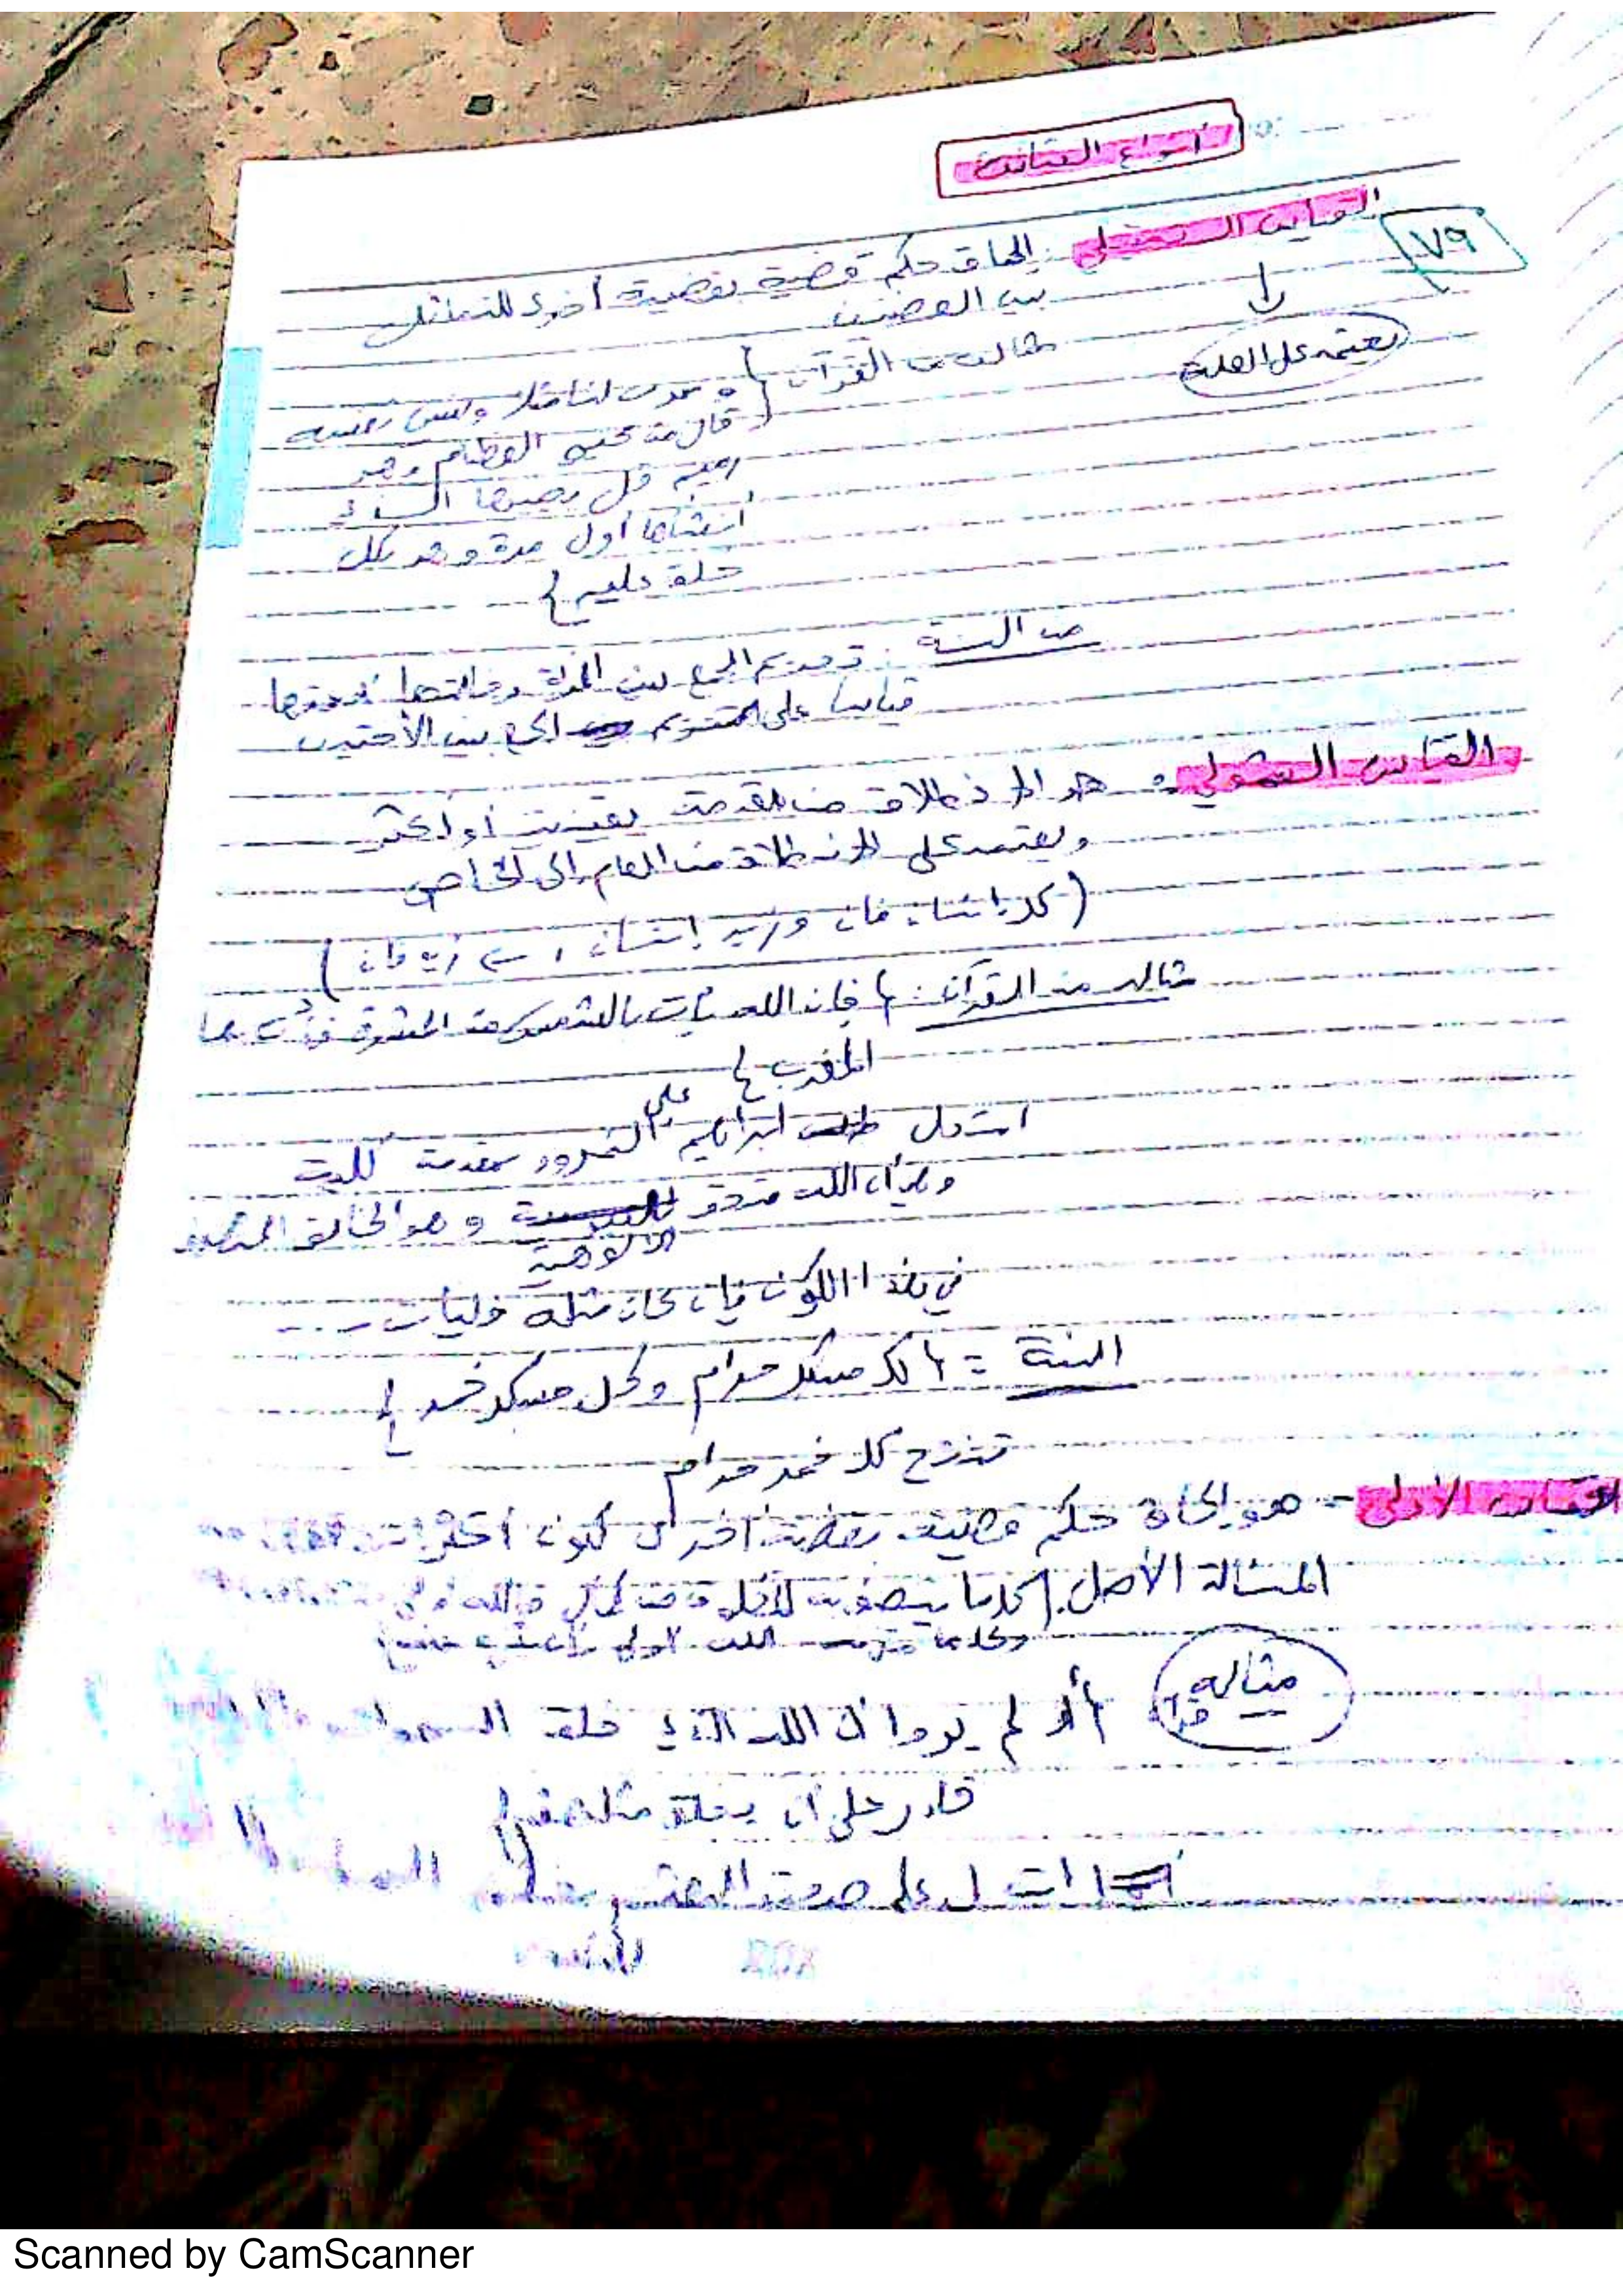 أنواع القياس
٧٩
القياس التمثيلي : إلحاق حكم قضية بقضية أخرى للتماثل
بين القضيتين
يعتمد على العلة
مثاله من القرآن { وضرب لنا مثلا ونسي خلقه
قال من يحيي العظام وهي
رميم قل يحييها الذي
أنشأها أول مرة وهو بكل
خلق عليم }
من السنة : تحريم الجمع بين المرأة وخالتها وعمتها
قياسا على تحريم الجمع بين الأختين
القياس الشمولي : هو الانطلاق من مقدمتين يقينيتين أو أكثر
ويعتمد على الانطلاق من العام إلى الخاص
( كل إنسان فان وزيد إنسان ، ← زيد فان )
مثاله من القرآن : { فإن الله يأت بالشمس من المشرق فأت بها
المغرب }
استدل إبراهيم على النمرود بمقدمة كلية
وهي أن الله متفرد الألوهية وهو الخالق
في هذا الكون فإن كان مثله فليأت ....
السنة = { كل مسكر حرام وكل مسكر خمر }
تنتج كل خمر حرام
قياس الأولى - هو إلحاق حكم قضية بقضية أخرى لكون
المسألة الأصل . كل ما يتصف به المخلوق من كمال فالله أولى
وكل ما الله أولى
مثاله { أو لم يروا أن الله الذي خلق السموات
قادر على أن يخلق مثلهم }
استدل على